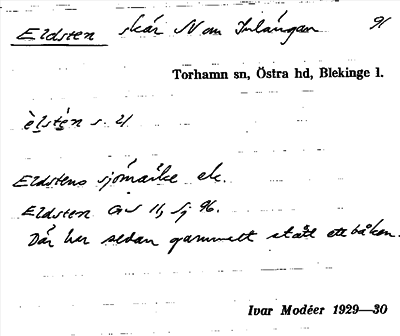 Eldsten skär N om Inlängan 91
Torhamn sn, Östra hd, Blekinge l.
èlstén s. 21
Eldstens sjömärke ek.
Eldsten GS 11, Sj 96.
Där har sedan gammalt stått ett båken.
Ivar Modéer 1929—30